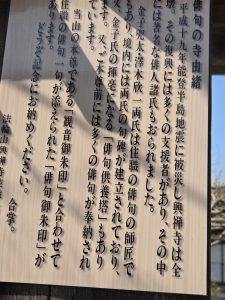 俳句の寺由緒
平成十九年能登半島地震に被災し興禅寺は全
壊、その復興には多くの支援者があり、その中
には著名な俳人諸氏もおられました。
金子兜太、澤木欣一両氏は住職の俳句の師匠で
もあり、境内には両氏の句碑が建立されており、
又、金子氏の揮毫になる「俳句供養塔」もあり
ます。又、ご本尊前には多くの俳句が奉納され
ています。
当山の本尊である「観音御朱印」と合わせて
住職の俳句一句が添えられた「俳句御朱印」が
どうぞ記念にお納めください。
合掌。
法輪山興禅寺